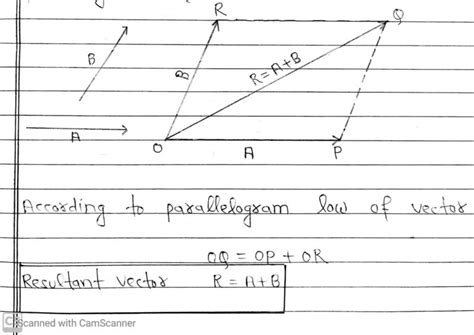 R
Q
B
B
R=A+B
A
O
A
P
According to parallelogram low of vector
OQ = OP + OR
Resultant vector R = A+B
Scanned with CamScanner